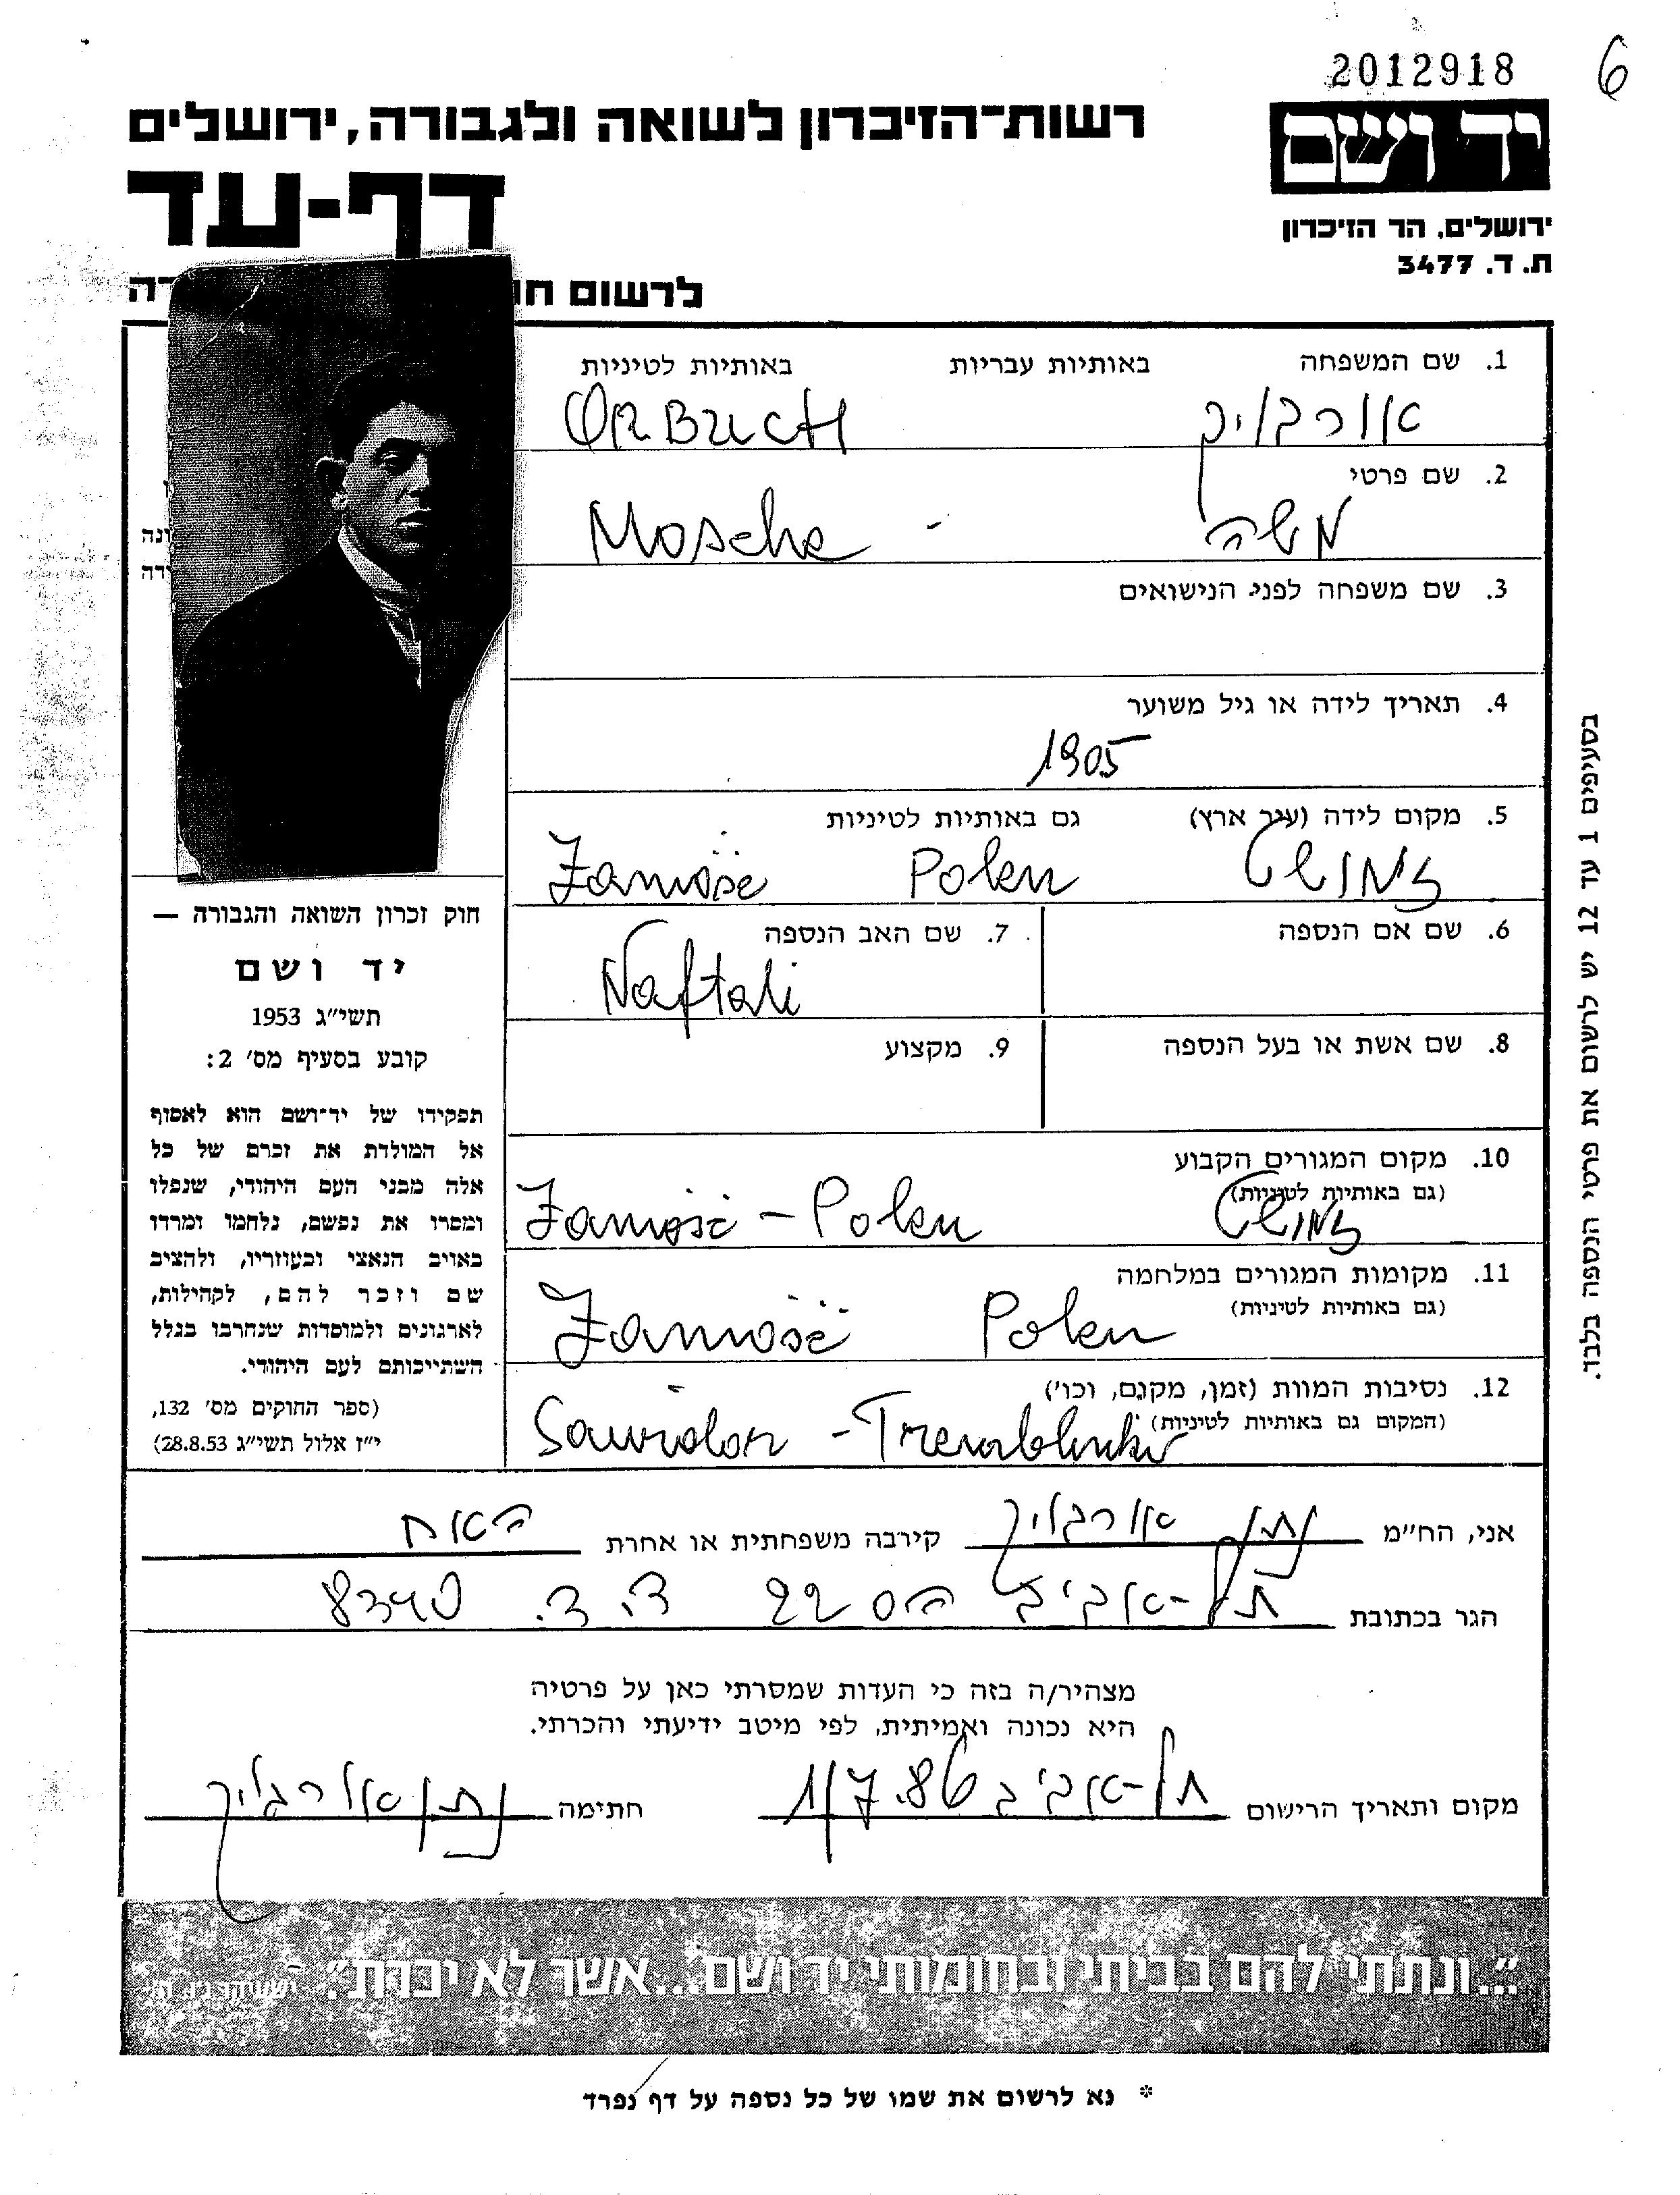 2012918
6
רשות־הזיכרון לשואה ולגבורה, ירושלים
יד ושם
דף-עד
ירושלים, הר הזיכרון
ת. ד. 3477
לרשום
1. שם המשפחה באותיות עבריות באותיות לטיניות
אורבוך ORBUCH
2. שם פרטי
משה - Mosche
3. שם משפחה לפני הנישואים
4. תאריך לידה או גיל משוער
1905
5. מקום לידה (עיר ארץ) גם באותיות לטיניות
Polen
6. שם אם הנספה
7. שם האב הנספה
Naftali
8. שם אשת או בעל הנספה
9. מקצוע
10. מקום המגורים הקבוע
(גם באותיות לטיניות)
Zamość - Polen
11. מקומות המגורים במלחמה
(גם באותיות לטיניות)
Zamość Polen
12. נסיבות המוות (זמן, מקום, וכו')
(המקום גם באותיות לטיניות)
חוק זכרון השואה והגבורה —
יד ושם
תשי״ג 1953
קובע בסעיף מס׳ 2:
תפקידו של יד־ושם הוא לאסוף
אל המולדת את זכרם של כל
אלה מבני העם היהודי, שנפלו
ומסרו את נפשם, נלחמו ומרדו
באויב הנאצי ובעוזריו, ולהציב
שם וזכר להם, לקהילות,
לארגונים ולמוסדות שנחרבו בגלל
השתייכותם לעם היהודי.
(ספר החוקים מס׳ 132,
י״ז אלול תשי״ג 28.8.53)
בסעיפים 1 עד 12 יש לרשום את פרטי הנספה בלבד.
אני, הח״מ נתן אורבוך קירבה משפחתית או אחרת האח
הגר בכתובת תל-אביב הס 22 ת.ד. 8340
מצהיר/ה בזה כי העדות שמסרתי כאן על פרטיה
היא נכונה ואמיתית, לפי מיטב ידיעתי והכרתי.
מקום ותאריך הרישום תל-אביב 1/7.86 חתימה נתן אורבוך
״...ונתתי להם בביתי ובחומותי יד ושם...אשר לא יכרת״. ישעיהו נ״ו, ה׳
* נא לרשום את שמו של כל נספה על דף נפרד